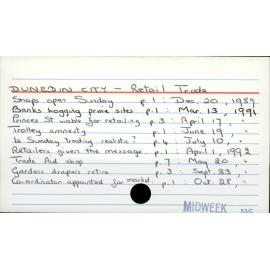 DUNEDIN CITY - Retail Trade
Shops open Sunday p.1 : Dec. 20, 1989
Banks hogging prime sites p.1 : Mar. 13, 1991
Princes St. viable for retailing p.3 : April 17, "
Trolley amnesty p.1 : June 19, "
Is Sunday trading realistic? p.4 : July 10, "
Retailers given the message p.1 : April 1, 1992
Trade Aid shop p.7 : May 20, "
Gardens drapers retire p.3 : Sept. 23, "
Co-ordinator appointed for market p.1 : Oct. 28, "
MIDWEEK